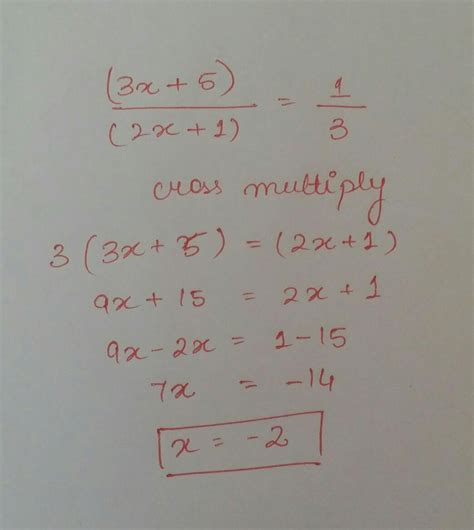 (3x + 5) / (2x + 1) = 1 / 3
cross multiply
3 (3x + 5) = (2x + 1)
9x + 15 = 2x + 1
9x - 2x = 1 - 15
7x = -14
x = -2